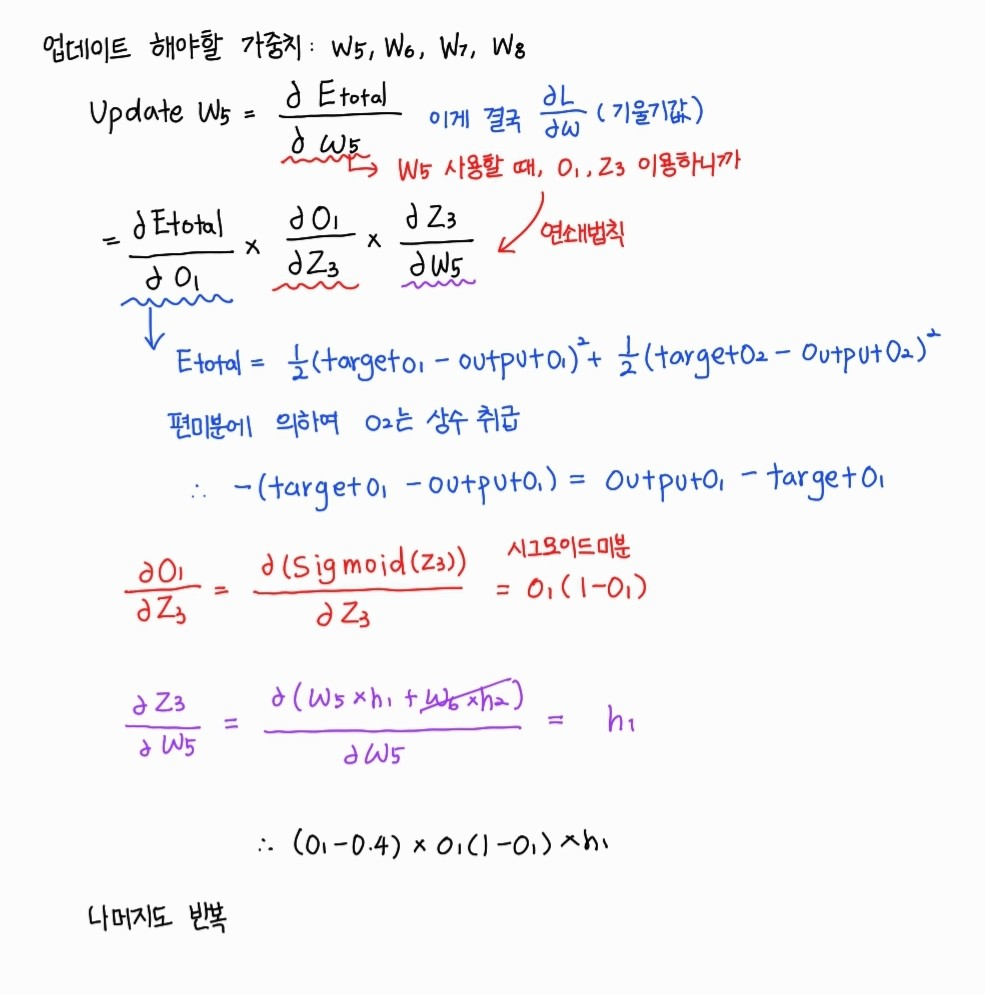 업데이트 해야할 가중치: W5, W6, W7, W8
Update W5 = ∂ Etotal / ∂ W5 이게 결국 ∂L/∂W (기울기값)
→ W5 사용할 때, O1, Z3 이용하니까
= ∂Etotal / ∂O1 × ∂O1 / ∂Z3 × ∂Z3 / ∂W5 연쇄법칙
Etotal = 1/2(targetO1 - outputO1)² + 1/2(targetO2 - outputO2)²
편미분에 의하여 O2는 상수 취급
∴ -(targetO1 - outputO1) = outputO1 - targetO1
시그모이드미분
∂O1 / ∂Z3 = ∂(Sigmoid(Z3)) / ∂Z3 = O1(1-O1)
∂Z3 / ∂W5 = ∂(W5×h1 + W6×h2) / ∂W5 = h1
∴ (O1-0.4) × O1(1-O1) × h1
나머지도 반복